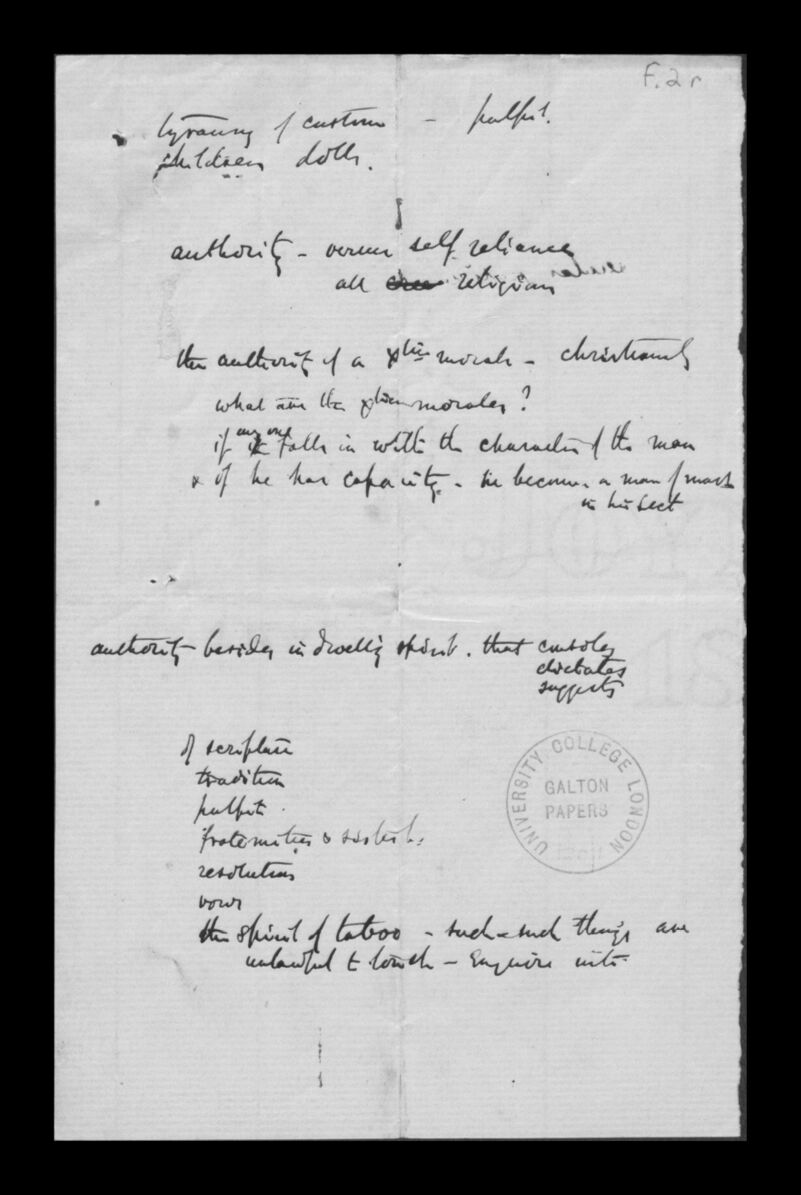 F.2r
tyranny of custom - pulpit.
children dolls.
authority - versus self reliance
all religions
the authority of a morals - christianity
what are the morales?
if any one falls in with the character of the man
& if he has capacity - he becomes a man of mark
in his sect
authority besides indwelling spirit. that consoles
dictates
suggests
of scripture
tradition
pulpit
fraternities & sisterh.
resolutions
vows
the spirit of taboo - such & such things are
unlawful to touch - Enquire into
UNIVERSITY COLLEGE LONDON
GALTON
PAPERS